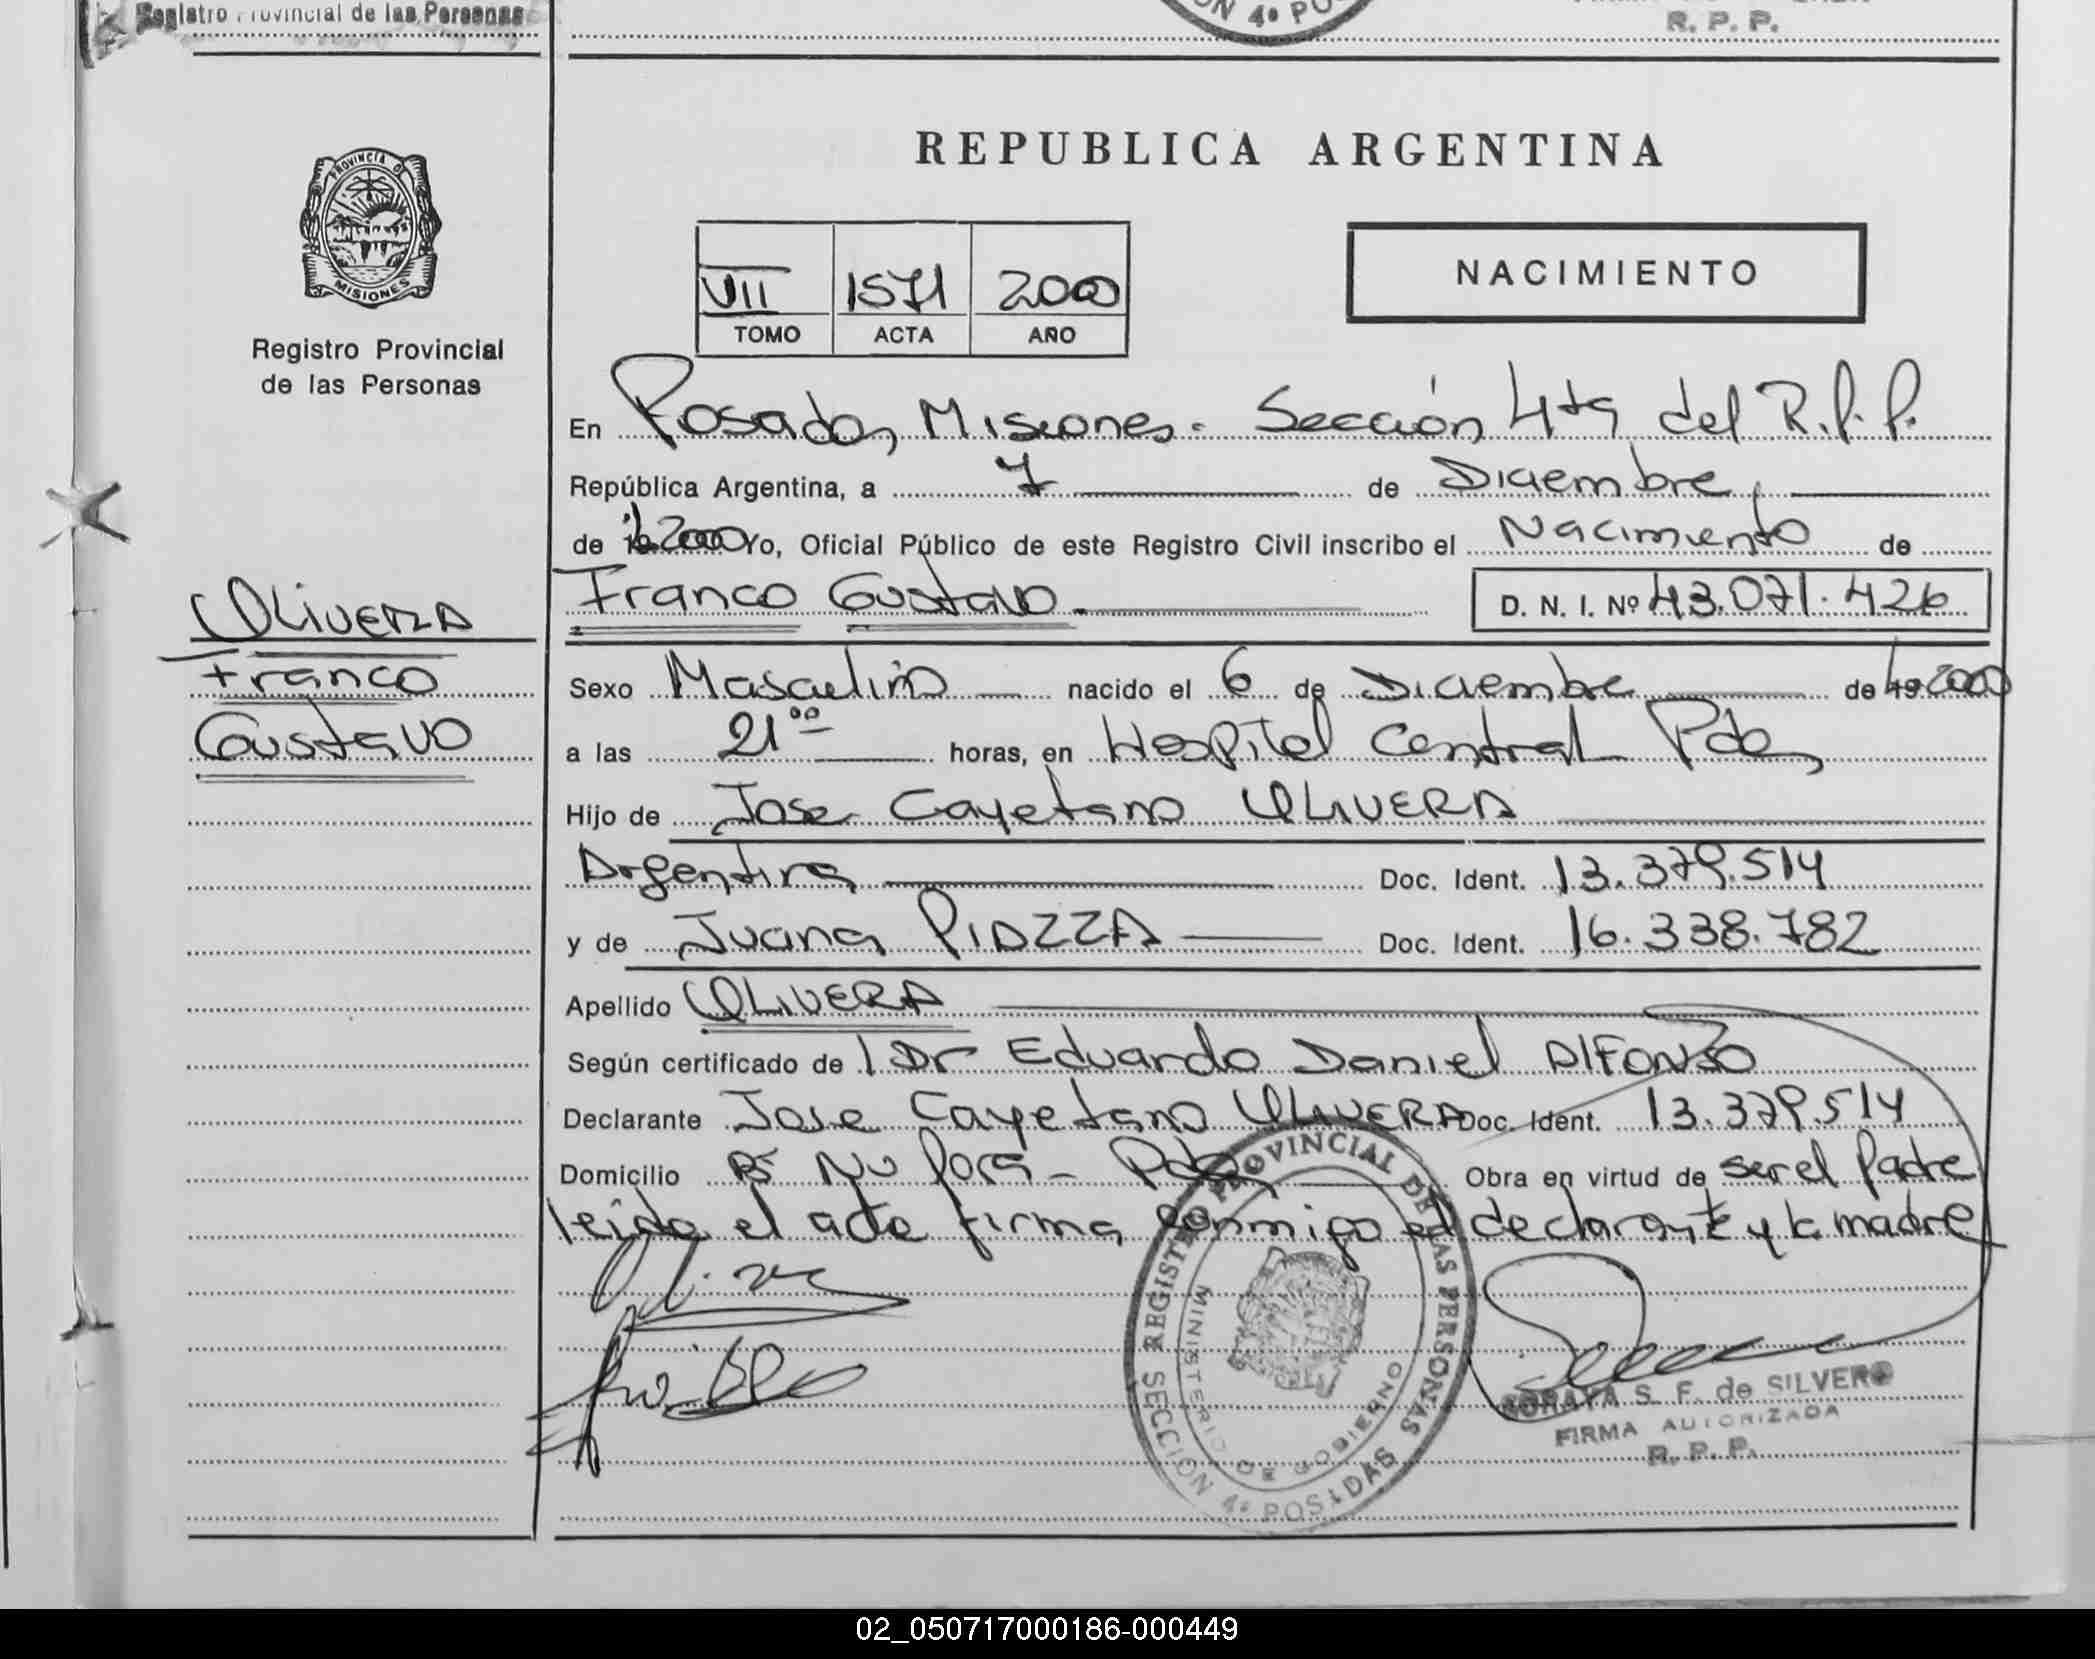 Registro Provincial de las Personas
N 4ª PO
R. P. P.
PROVINCIA DE
MISIONES
Registro Provincial
de las Personas
REPUBLICA ARGENTINA
VII 1571 2000
TOMO ACTA AÑO
NACIMIENTO
En Posadas, Misiones. Sección 4ta del R.P.P.
República Argentina, a 7 de Diciembre,
de 2000 Yo, Oficial Público de este Registro Civil inscribo el Nacimiento de
Franco Gustavo. D. N. I. Nº 43.071.426
OLIVERA
Franco
Gustavo
Sexo Masculino nacido el 6 de Diciembre de 2000
a las 21⁰⁰ horas, en Hospital Central Pdas,
Hijo de Jose Cayetano OLIVERA
Argentina Doc. Ident. 13.379.514
y de Juana PIAZZA Doc. Ident. 16.338.782
Apellido OLIVERA
Según certificado de l Dr Eduardo Daniel Alfonzo
Declarante Jose Cayetano OLIVERA Doc. Ident. 13.379.514
Domicilio Bº Ñu Pora - Pdas, Obra en virtud de ser el Padre
leida el acta firma conmigo el declarante y la madre
REGISTRO PROVINCIAL DE LAS PERSONAS
MINISTERIO DE GOBIERNO
SECCION 4ª POSADAS
SORAYA S. F. de SILVERO
FIRMA AUTORIZADA
R. P. P.
02_050717000186-000449